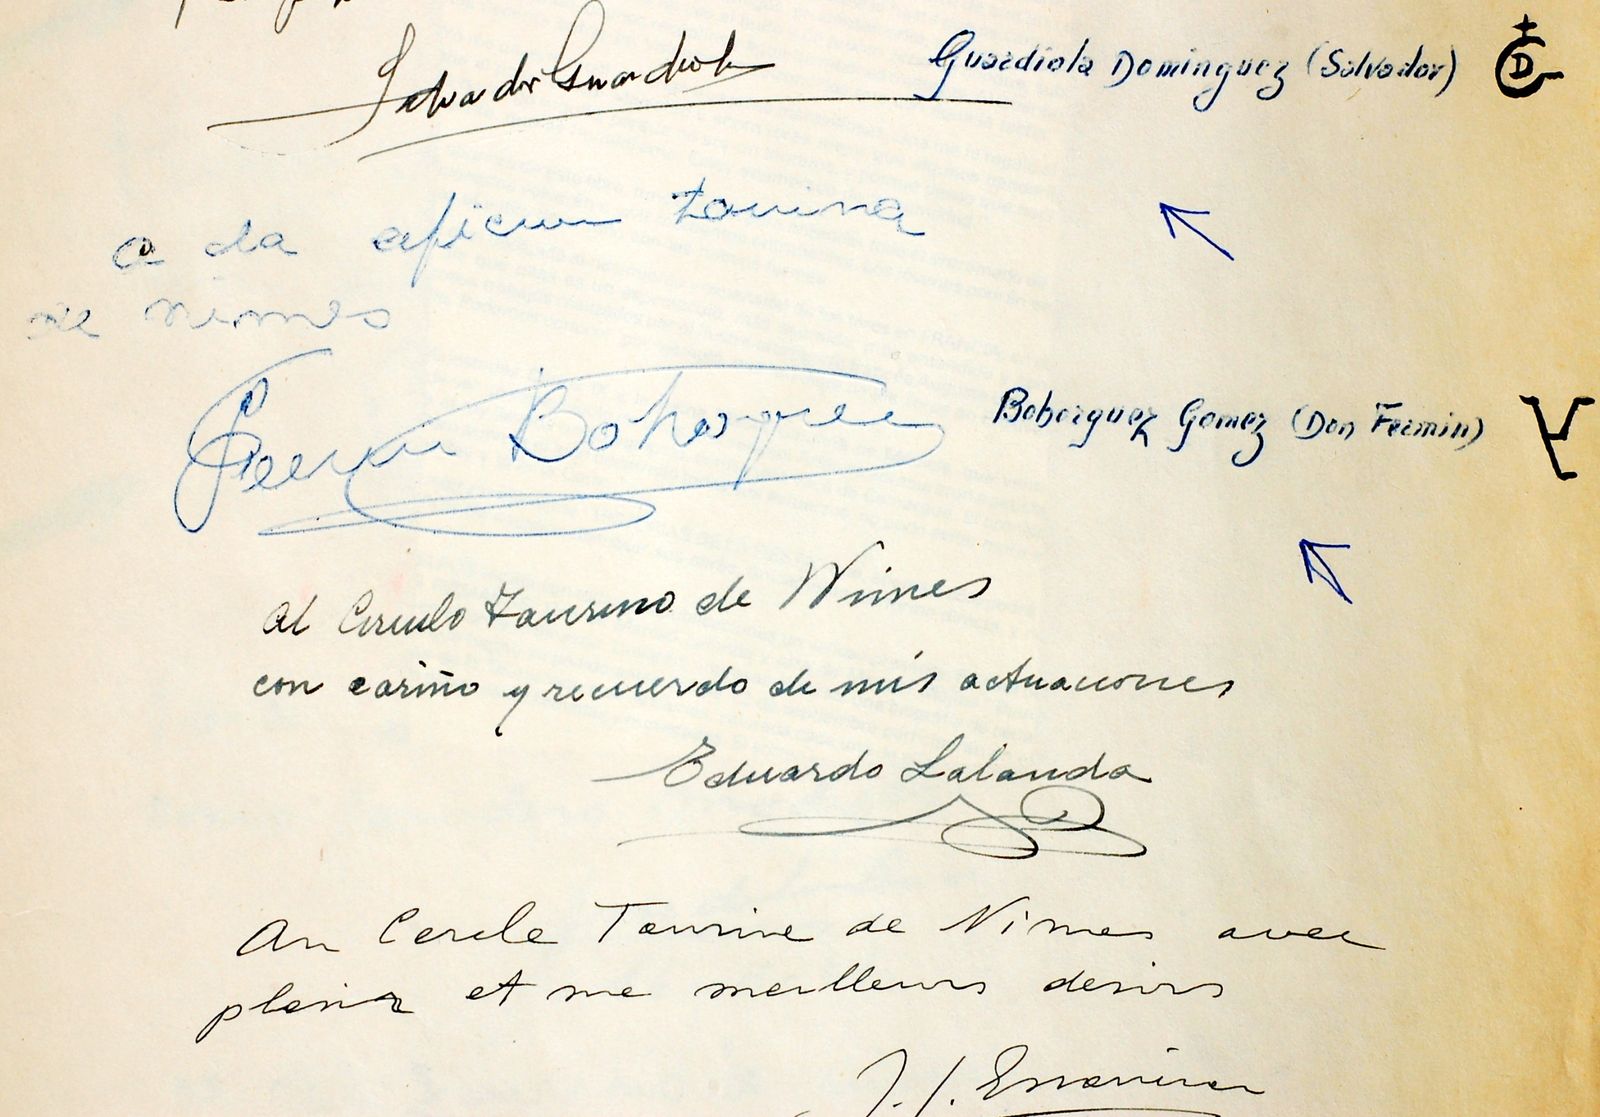 Salvador Guardiola
Guardiola Dominguez (Salvador)
a la aficion taurina
de nimes
Fermin Bohorquez
Bohorquez Gomez (Don Fermin)
Al Circulo Taurino de Nimes
con cariño y recuerdo de mis actuaciones
Eduardo Lalanda
Au Cercle Taurine de Nimes avec
plesir et me meilleurs desirs